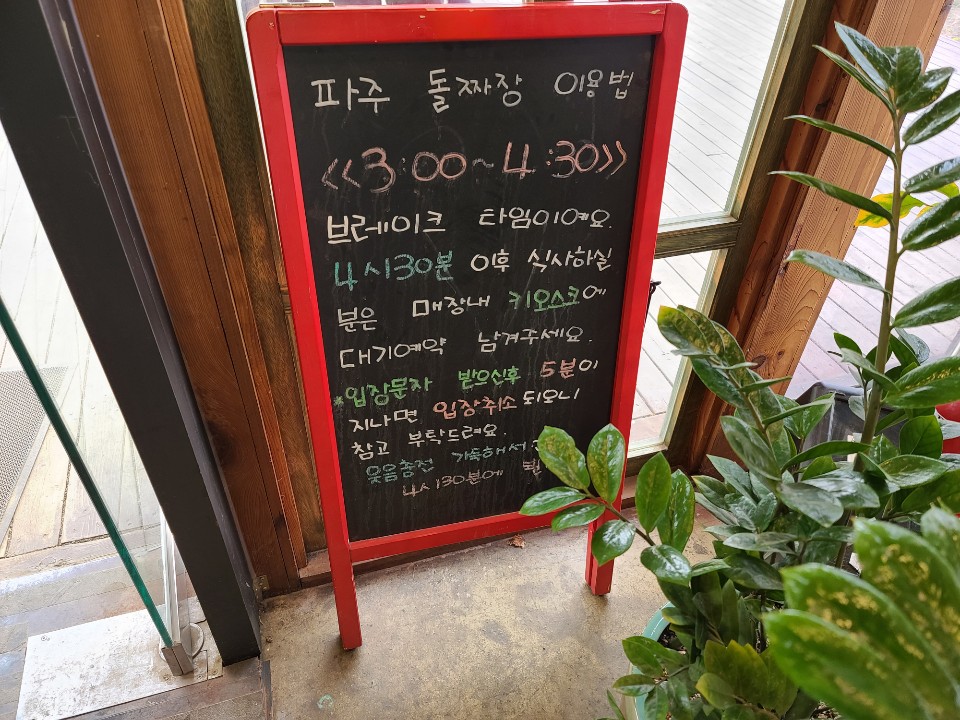 파주 돌짜장 이용법
<<3:00~4:30>>
브레이크 타임이예요.
4시30분 이후 식사하실
분은 매장내 키오스크에
대기예약 남겨주세요.
*입장문자 받으신후 5분이
지나면 입장취소 되오니
참고 부탁드려요.
웃음충전 가득해서
4시30분에